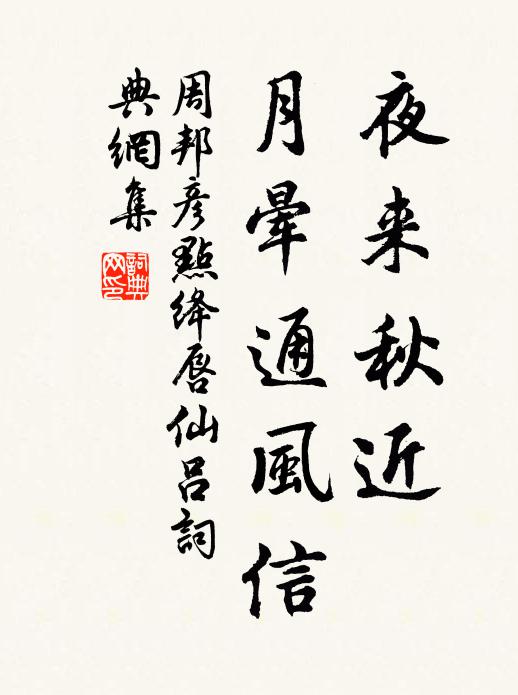 夜来秋近
月暈通風信
周邦彥點絳唇仙呂詞
典網集
詞典
网印